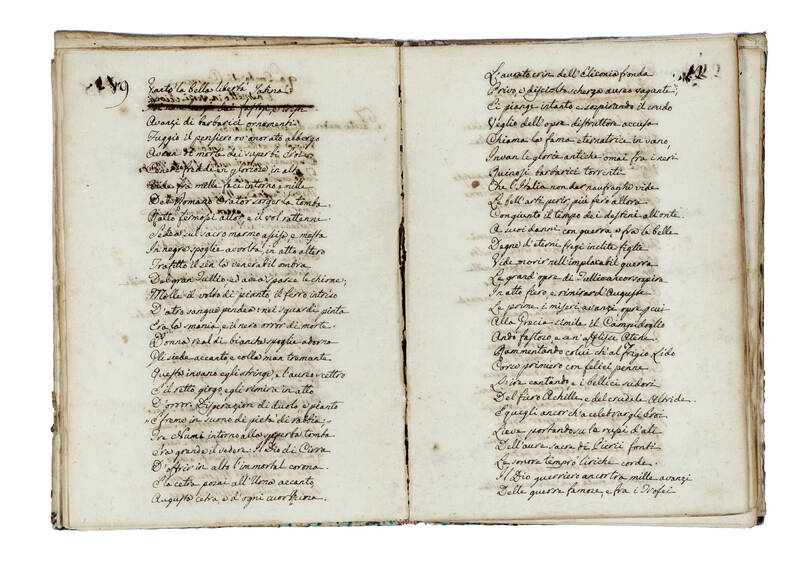 Tanto la bella libertà Latina
Avanzi di barbarici ornamenti
Fuggío il pensiero ov'onorato albergo
Avean di morte dei superbi Eroi
Cener freddi e in glorioso in alto
Vide fra mille faci intorno e mille
Del Romano Orator sorger la tomba
Ratto fermossi allor, e il vol rattenne
Sedea sul sacro marmo assisa, e mesta
In negre spoglie avvolta in atto altero
Trafitto il sen la venerabil ombra
Del gran Tullio, ed avea sparse le chiome;
Molle il volto di pianto, il ferro intriso
D'atro sangue pendea: nei sguardi pinta
Era la smania, e il nero orror di morte.
Donna real di bianche spoglie adorna
Gli siede accanto, e colla man tremante
Questo invano egli stringe, e l'aureo scettro
E il retto giogo, egli rimira in atto
D'orror, disperazion di duolo, e pianto
E freme in suono di pietà di rabbia;
Tre Numi intorno alla superba tomba
Era grande il vedere: il Dio di Cirra
D'offrir in alto l'immortal corona
E la cetra posar all'Urna accanto,
Augusta cetra, e d'ogni cuor
149
L'aurato crin dell'Eliconia fronda
Privo, e disciolto scherza aureo vagante;
Ei piange intanto, e sospirando il crudo
Veglio dell'opre distruttore accusa
Chiama la fama eternatrice in vano,
Invan le glorie antiche omai fra i neri
Quinzi barbarici torrenti
Che l'Italia nondar naufraghe vide
Le bell'arti perir, più fero allora
Congiunto il tempo dei destini all'onte
A suoi danni, con guerra, e fra le belle
Degne d'eterni fregi inclite figlie
Vide morir nell'implacabil guerra
Le grand'opre di Tullio ancor sospira
In atto fiero, e rimirar d'Augusto
Le prime i miseri avanzi opre, gui
Alla Grecia simile il Campidoglio
Andò fastoso, e un'afflisse Atene
Rammentando colui ch'al Frigio Lido
Corse primiero con felici penne
L'ire cantando, e i bellici sudori
Del fiero Achille, e del crudele Atride.
E quegli ancor ch'a celebrar gli Eroi
Lieve portando su le rupi d'ali
Dell'aure sacre di Pierii fonti
Le sonore temprò liriche corde.
Il Dio guerriero ancor tra mille avanzi
Delle guerre famose, e fra i Trofei